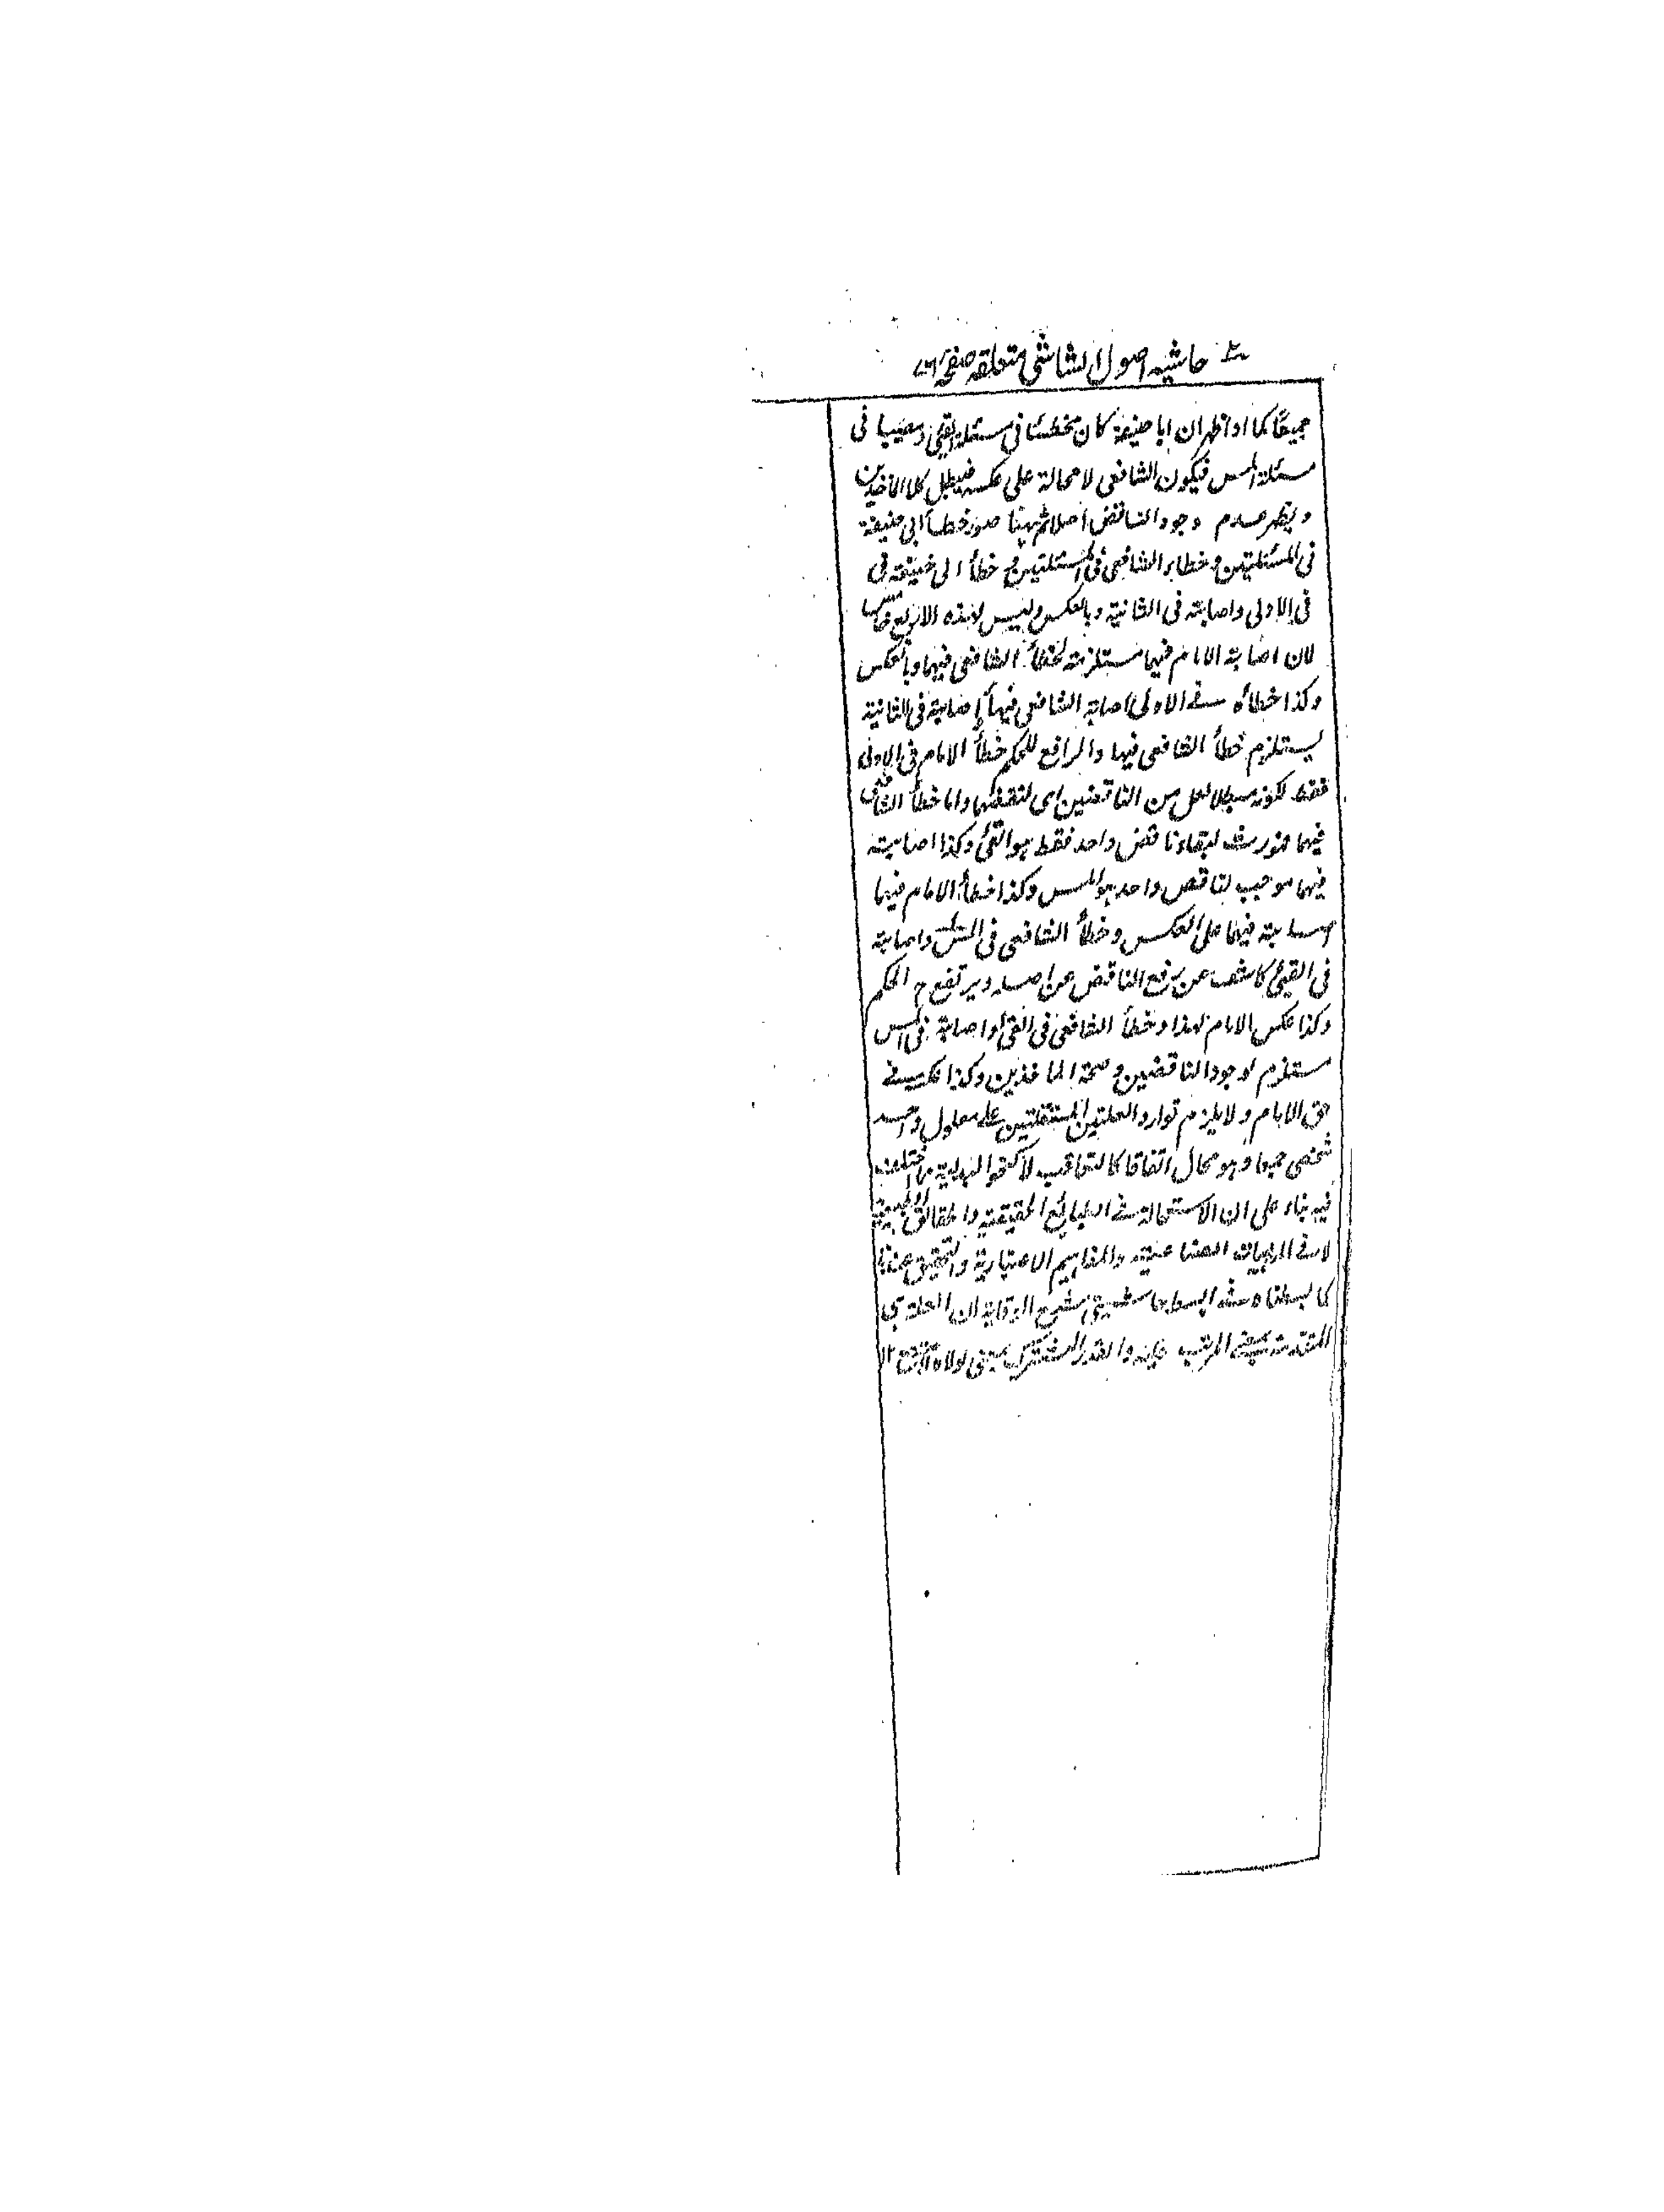 حاشيه اصول الشاشى متعلقه صفحه
جميعًا كما اذا ظهر ان ابا حنيفة كان مخطئا فى مسئلة القئ ومصيبا فى
مسئلة المس فيكون الشافعى لا محالة على عكسه فيبطل كلا الماخذين
ويظهر عدم وجود الناقض اصلا ثم ههنا صور خطأ ابى حنيفة
فى المسئلتين وخطاء الشافعى فى المسئلتين وخطأ ابى حنيفة فى
فى الاولى واصابته فى الثانية وبالعكس وليس لهذه الاربع خامس
لان اصابة الامام فيهما مستلزمة لخطأ الشافعى فيهما وبالعكس
وكذا خطأه فى الاولى اصابة الشافعى فيها واصابته فى الثانية
يستلزم خطأ الشافعى فيها والرافع للحكم خطأ الامام فى الاولى
فقط لكونه مبطلا لكل من الناقضين اى لنقضهما واما خطأ الشافعى
فيهما فمورث لبقاء ناقض واحد فقط هو القئ وكذا اصابته
فيهما موجب لناقض واحد هو المس وكذا خطأ الامام فيهما
اصابته فيهما على العكس وخطأ الشافعى فى المس واصابته
فى القئ كاشف عن رفع الناقض عن اصله ويرتفع ح الحكم
وكذا عكس الامام لهذا وخطأ الشافعى فى القئ واصابته فى المس
مستلزم لوجود الناقضين وصحة الماخذين وكذا عكسه فى
حق الامام ولا يلزم توارد العلتين المستقلتين على معلول واحد
شخصى جميعا وهو محال اتفاقا كالتعاقب لا
فيه بناء على ان الاستحالة فى الطبائع الحقيقية والحقائق
لا فى الماهيات الصناعية والمفاهيم الاعتبارية والتحقيق عندنا
كما بسطناه شرح الوقاية ان العلة هى
المتقدمة بمعنى المرتب عليه والقدر المشترك بمعنى لولاه لامتنع ١٢